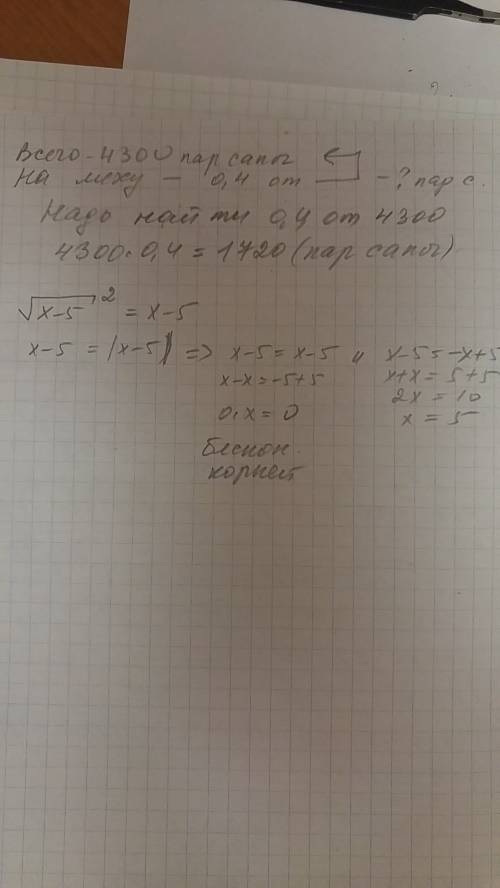 Всего - 4300 пар сапог
На меху - 0,4 от - ? пар с.
Надо найти 0,4 от 4300
4300·0,4 = 1720 (пар сапог)
√x-5² = x-5
x-5 = |x-5| => x-5 = x-5 и x-5 = -x+5
x-x = -5+5 x+x = 5+5
0·x = 0 2x = 10
x = 5
Бескон.
корней